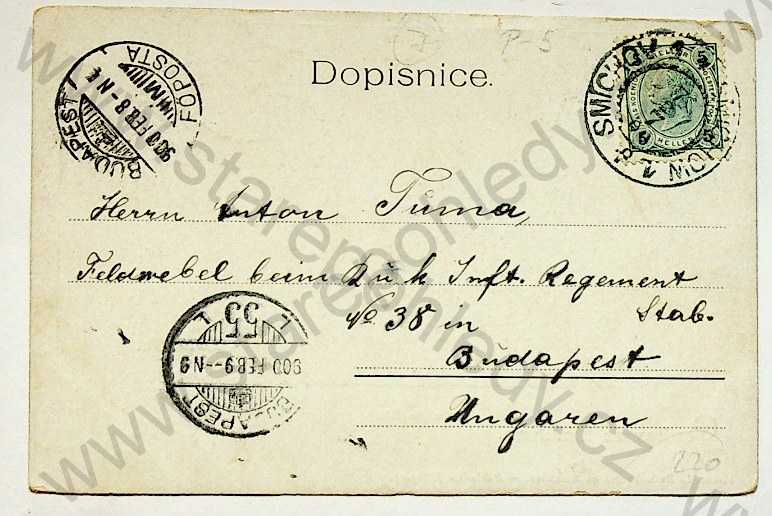 7
P-5
Dopisnice.
BUDAPEST FŐPOSTA
900 FEB 8-N
SMÍCHOV
HELLER
Herrn Anton Tůma,
Feldwebel beim K u k Inft. Regement
No 38 in Stab.
Budapest
Ungaren
BUDAPEST
900 FEB 9--N9
55
220
www.staremohledy.cz